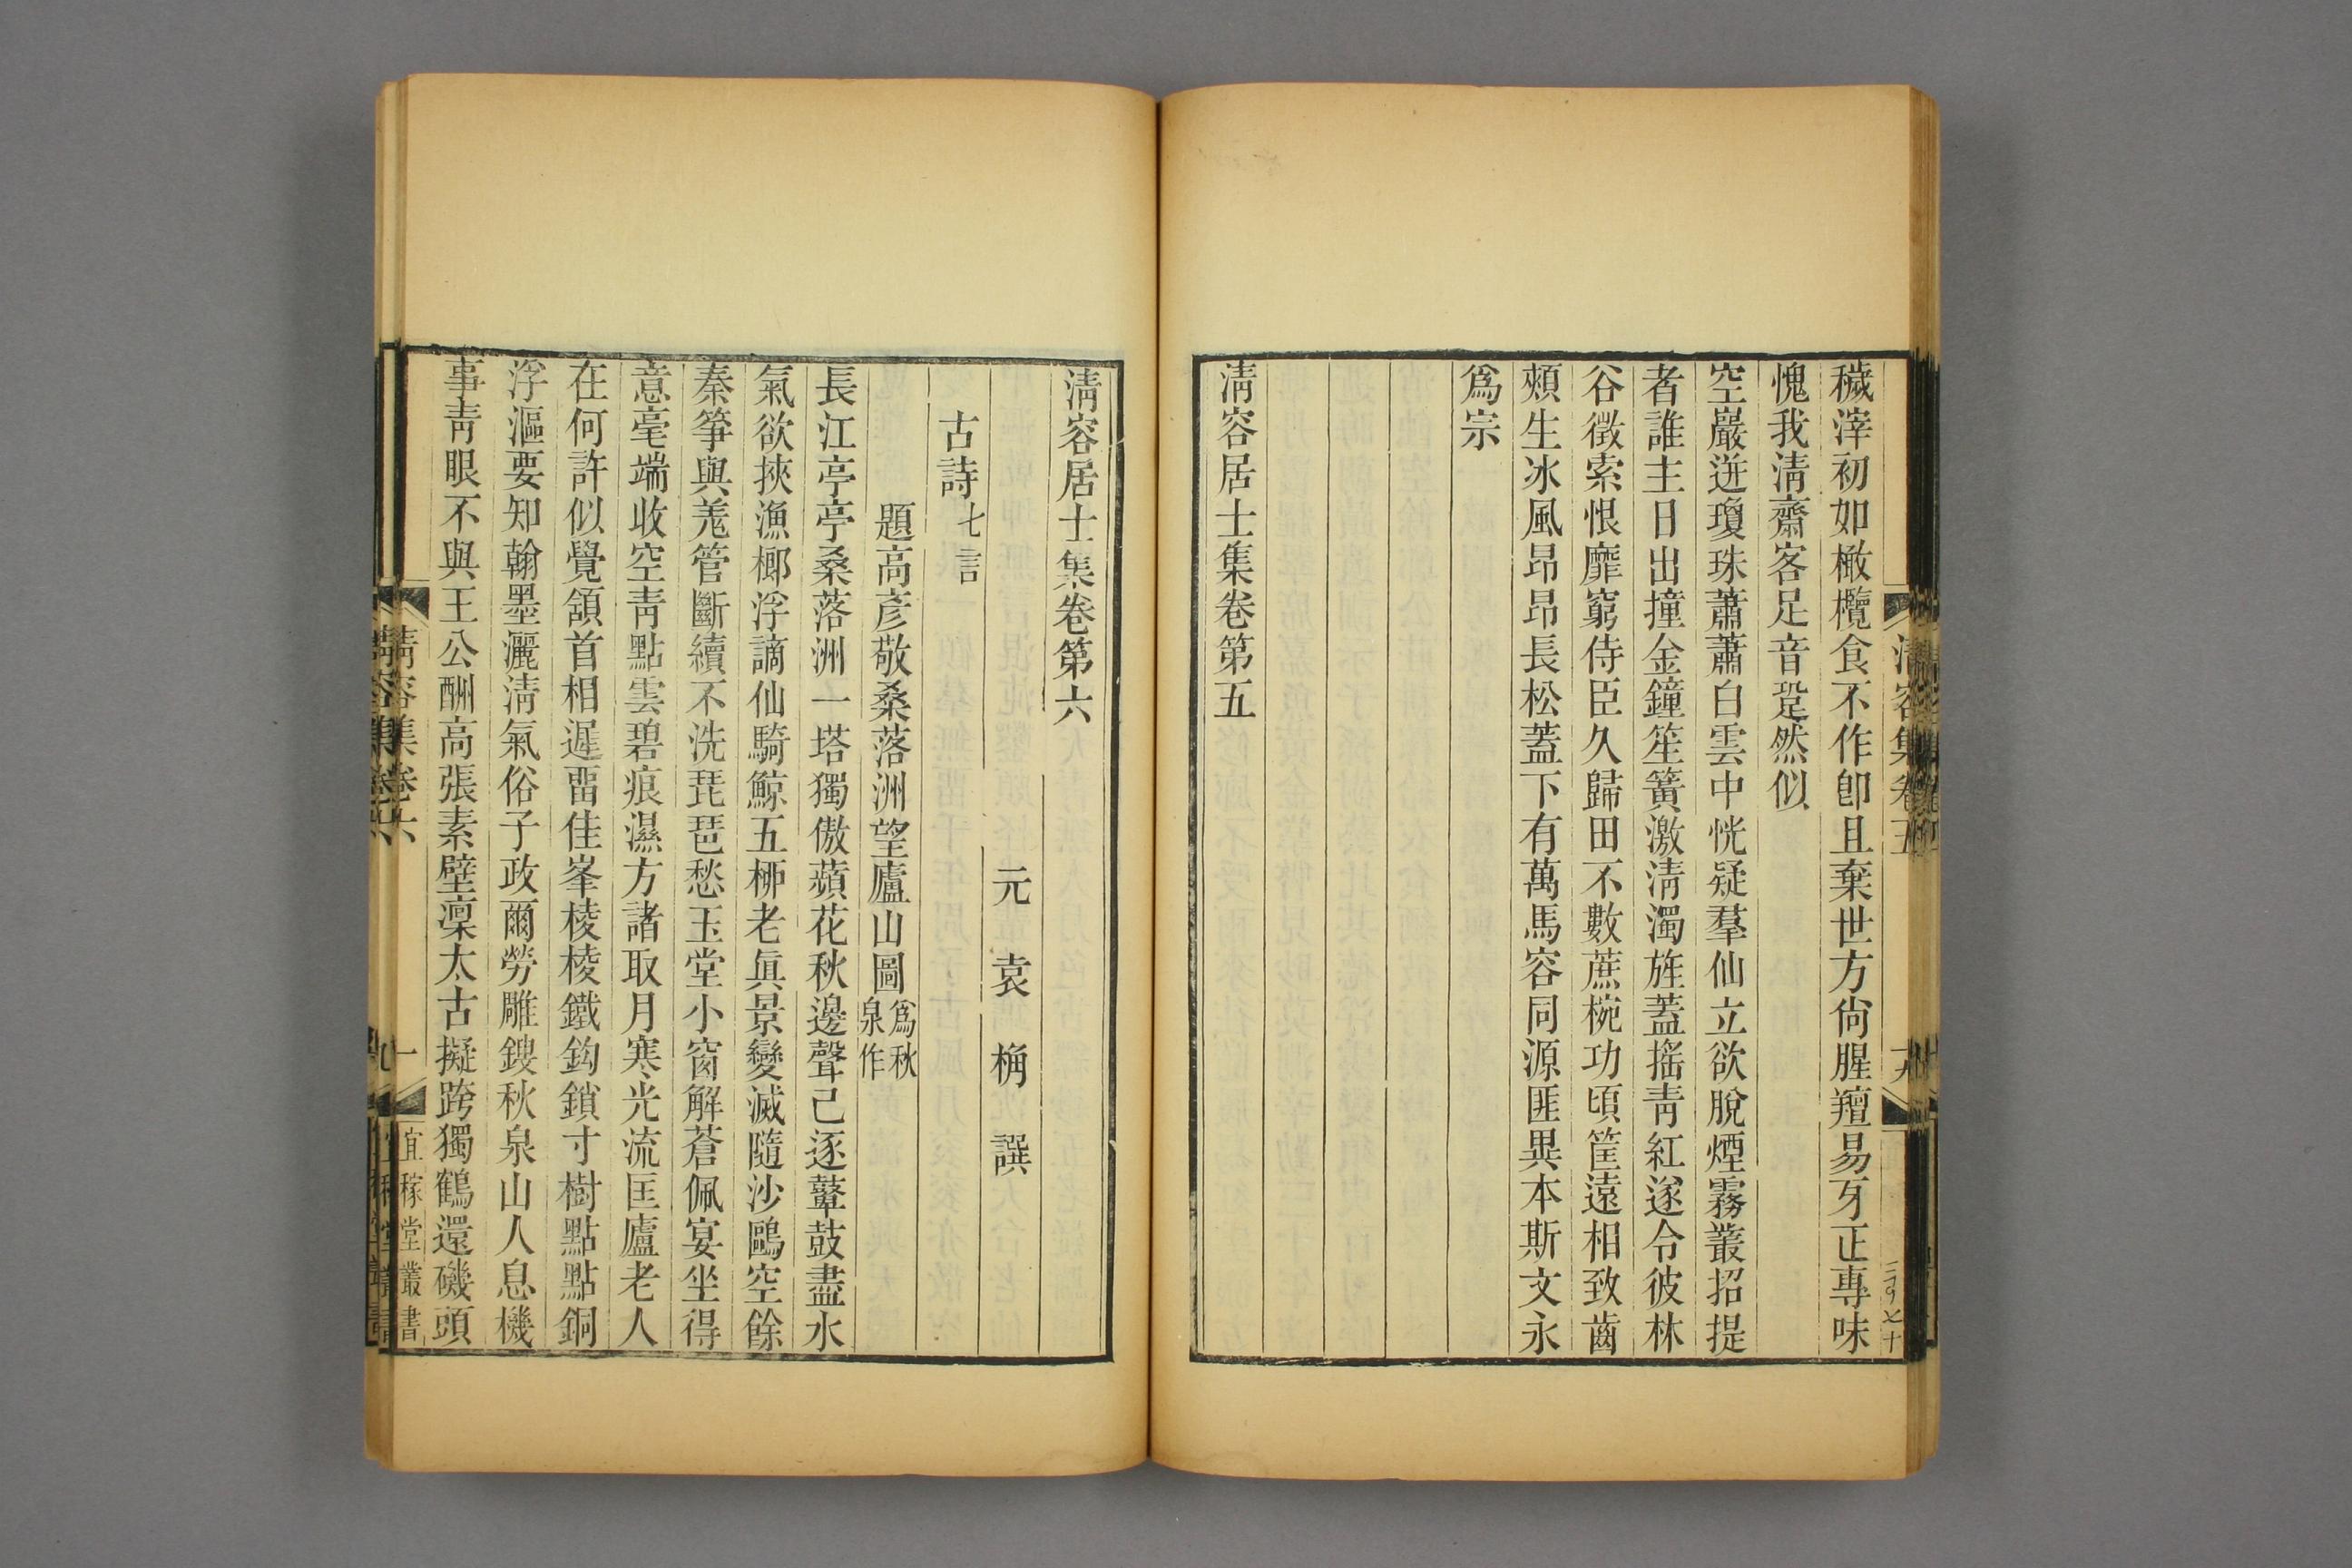 穢滓初如橄欖食不作卽且棄世方尙腥羶易牙正專味
愧我淸齋客足音跫然似
空巖迸瓊珠蕭蕭白雲中恍疑羣仙立欲脫煙霧叢招提
者誰主日出撞金鐘笙簧激淸濁旌蓋搖靑紅遂令彼林
谷徵索恨靡窮侍臣久歸田不數蔗椀功頃筐遠相致齒
頰生冰風昂昂長松蓋下有萬馬容同源匪異本斯文永
爲宗
淸容居士集卷第五
淸容居士集卷第六
元袁桷譔
古詩七言
題高彥敬桑落洲望廬山圖爲秋泉作
長江亭亭桑落洲一塔獨傲蘋花秋邊聲已逐鼙鼓盡水
氣欲挾漁榔浮謫仙騎鯨五柳老眞景變滅隨沙鷗空餘
秦箏與羗管斷續不洗琵琶愁玉堂小窗解蒼佩宴坐得
意毫端收空靑點雲碧痕濕方諸取月寒光流匡廬老人
在何許似覺頷首相遲畱佳峯棱棱鐵鈎鎖寸樹點點銅
浮漚要知翰墨灑淸氣俗子政爾勞雕鎪秋泉山人息機
事靑眼不與王公酬高張素壁凛太古擬跨獨鶴還磯頭
淸容集卷六
一
宜稼堂叢書